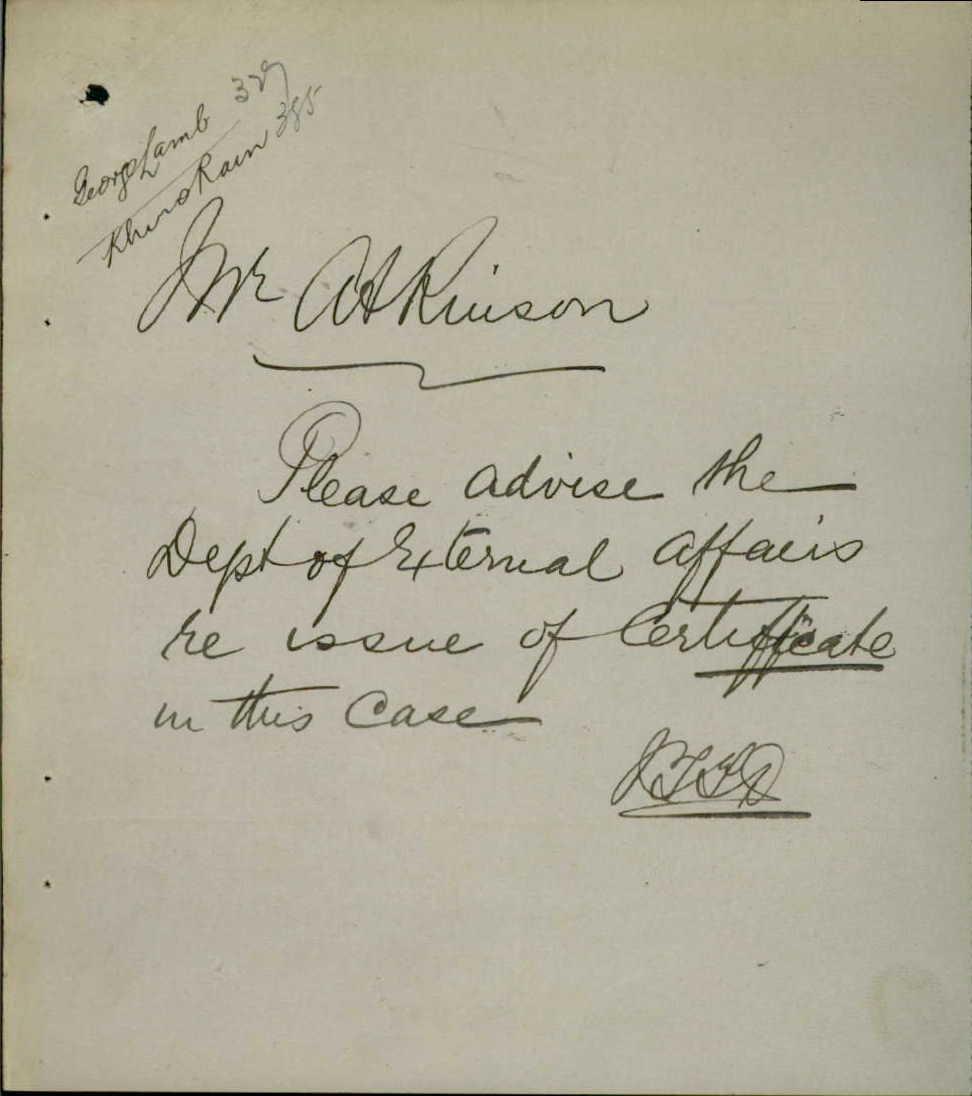 George Lamb 329
Khuda Ram 385
Mr Atkinson
Please advise the
Dept of External Affairs
re issue of Certificate
in this case